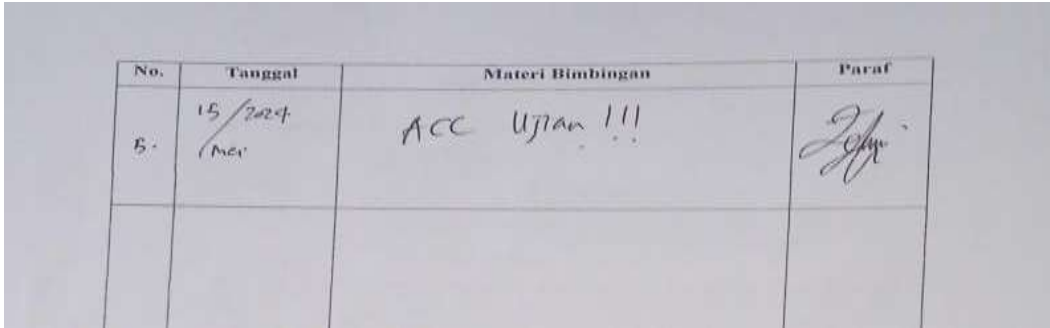 No. Tanggal Materi Bimbingan Paraf
5. 15/2024 ACC Ujian !!!
/Mei